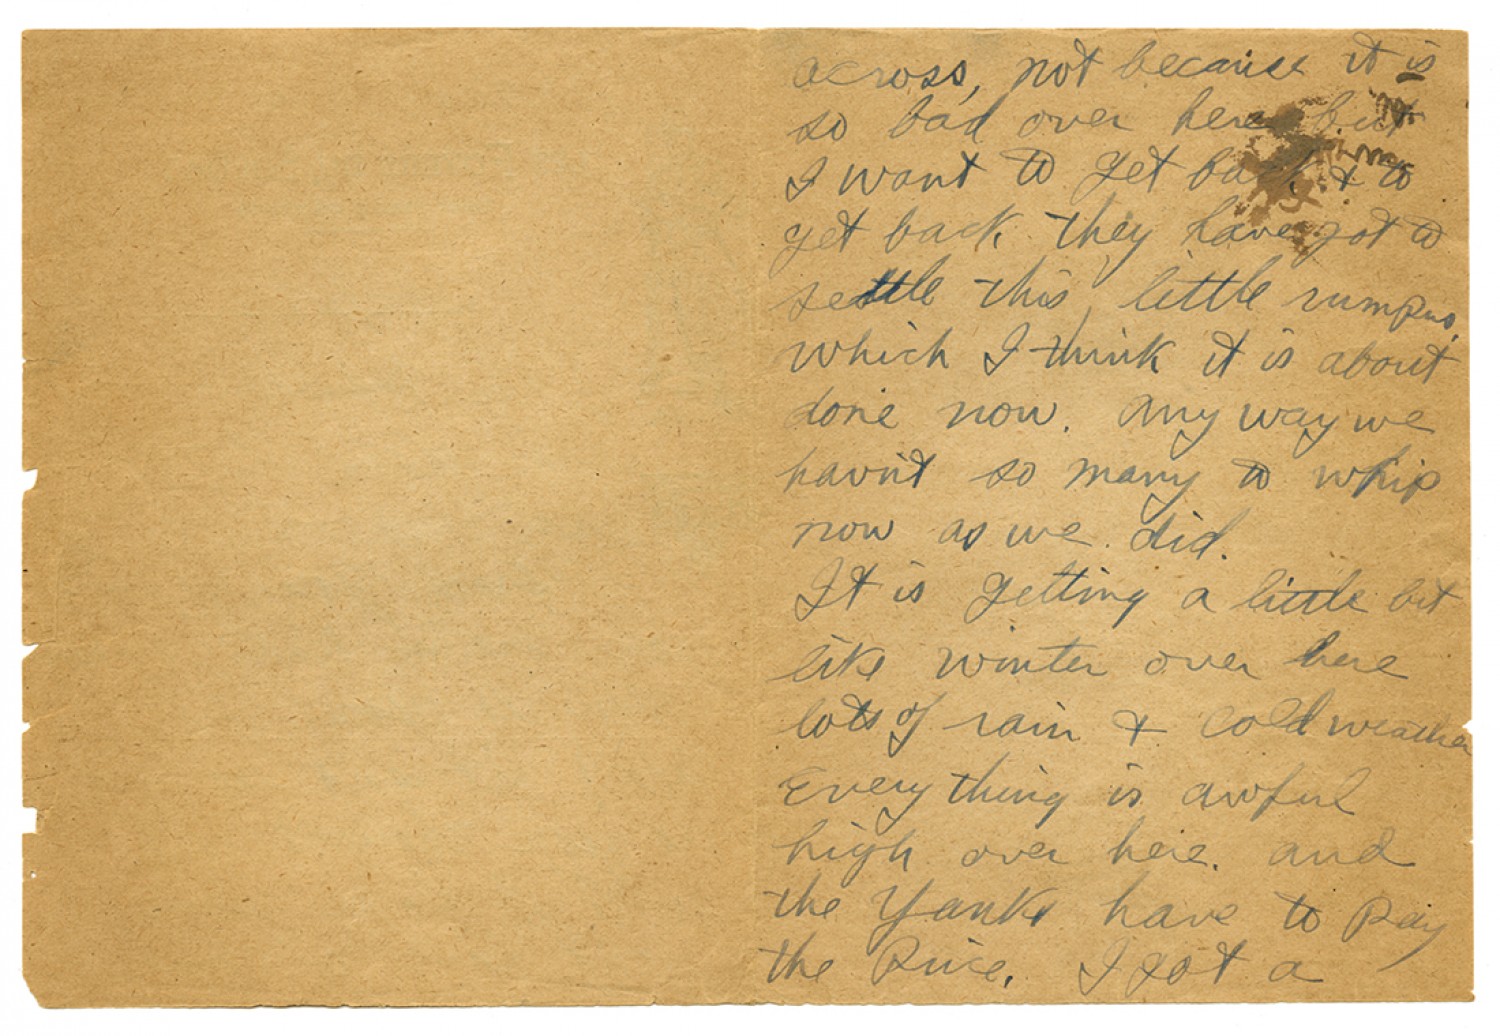 across, not because it is
so bad over here but
I want to get back & to
get back they have got to
settle this little rumpus,
which I think it is about
done now. Any way we
havn't so many to whip
now as we did.
It is getting a little bit
like winter over here
lots of rain & cold weather
Every thing is awful
high over here. and
the Yanks have to pay
the Price. I got a